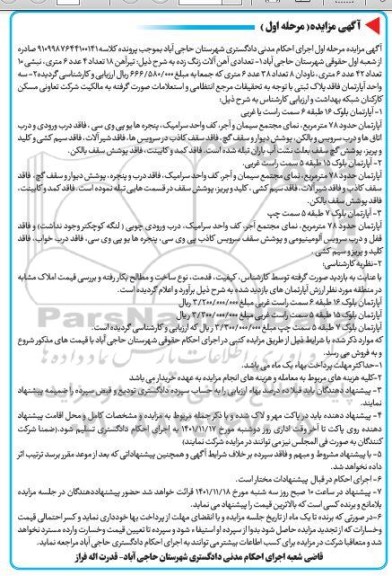 آگهی مزایده( مرحله اول )
آگهی مزایده مرحله اول اجرای احکام مدنی دادگستری شهرستان حاجی آباد بموجب پرونده کلاسه ۹۱۰۹۹۸۷۶۴۴۱۰۰۱۴۱ صادره
از شعبه اول حقوقی شهرستان حاجی آباد ۱- تعدادی آهن آلات زنگ زده به شرح ذیل: تیرآهن ۱۸ تعداد ۴ عدد ۶ متری، نبشی ۱۰
تعداد ۴۲ عدد ۶ متری، ناودان ۸ تعداد ۳۸ عدد ۶ متری که جمعا به مبلغ ۶۶۶/۵۸۰/۰۰۰ ریال ارزیابی و کارشناسی گردیده ۲- سه
واحد آپارتمان فاقد پلاک ثبتی با توجه به تحقیقات مرجع انتظامی و استعلامات صورت گرفته به مالکیت شرکت تعاونی مسکن
کارکنان شبکه بهداشت و ارزیابی کارشناس به شرح ذیل:
۱- آپارتمان بلوک ۱۶ طبقه ۶ سمت راست یا غربی
آپارتمان حدود ۷۸ مترمربع، نمای مجتمع سیمان و آجر، کف واحد سرامیک، پنجره ها یو پی وی سی، فاقد درب ورودی و درب
اتاق ها و درب سرویس و بالکن، پوشش دیوار و سقف گچ، فاقد سقف کاذب در سرویس ها، فاقد شیر آلات، فاقد سیم کشی و کلید
و پریز، پوشش گچ سقف بعلت نشت آب باران تبله شده است. فاقد کمد و کابینت، فاقد پوشش سقف بالکن.
۲- آپارتمان بلوک ۱۵ طبقه ۵ سمت راست غربی.
آپارتمان حدود ۷۸ مترمربع، نمای مجتمع سیمان و آجر، کف واحد سرامیک، فاقد درب و پنجره، پوشش دیوار و سقف گچ، فاقد
سقف کاذب و فاقد شیر آلات، فاقد سیم کشی، کلید و پریز، پوشش سقف در قسمت هایی تبله نموده است. فاقد کمد و کابینت،
فاقد پوشش سقف بالکن.
۳- آپارتمان بلوک ۷ طبقه ۵ سمت چپ
آپارتمان حدود ۷۸ مترمربع، نمای مجتمع آجر، کف واحد سرامیک، درب ورودی چوبی ( لنگه کوچکتر وجود نداشت) و فاقد
قفل و درب سرویس آلومینیومی و پوشش سقف سرویس کاذب پی وی سی، پنجره ها یو پی وی سی، فاقد درب خواب، فاقد
کلید و پریز و سیم کشی
۲-نظریه کارشناسی:
با عنایت به بازدید صورت گرفته توسط کارشناس، کیفیت، قدمت، نوع ساخت و مصالح بکار رفته و بررسی قیمت املاک مشابه
در منطقه مورد نظر ارزش آپارتمان های بازدید شده به شرح ذیل برآورد و اعلام گردیده است.
آپارتمان بلوک ۱۶ طبقه ۶ سمت راست غربی مبلغ ۳/۲۰۰/۰۰۰/۰۰۰ ریال
آپارتمان بلوک ۱۵ طبقه ۵ سمت راست غربی مبلغ ۳/۲۰۰/۰۰۰/۰۰۰ ریال
آپارتمان بلوک ۷ طبقه ۵ سمت چپ مبلغ ۳/۳۰۰/۰۰۰/۰۰۰ ریال که ارزیابی و کارشناسی گردیده است.
که موارد ذکر شده با شرایط ذیل از طریق مزایده کتبی در اجرای احکام حقوقی شهرستان حاجی آباد با قیمت های مذکور شروع
و به فروش می رسد.
۱-حداکثر مهلت پرداخت بهاء یک ماه می باشد.
۲-کلیه هزینه های مربوط به معامله و هزینه های انجام مزایده به عهده خریدار می باشد
۳- پیشنهاد دهندگان باید فیلاده درصد بهاء ارزیابی را به حساب سپرده دادگستری تودیع و فیش سپرده را ضمیمه پیشنهاد
نمایند.
۴- پیشنهاد دهنده باید در پاکت مهر و لاک شده و با ذکر جمله مربوط به مزایده و مشخصات کامل و محل اقامت پیشنهاد
دهنده روی پاکت تا آخر وقت اداری روز دوشنبه مورخ ۱۴۰۱/۱۱/۱۷ به اجرای احکام دادگستری تسلیم شود.(ضمنا شرکت
کنندگان به صورت فی المجلس نیز می توانند در مزایده شرکت نمایند)
۵- با پیشنهاد مشروط و مبهم و فاقد سپرده بر خلاف شرایط آگهی و همچنین پیشنهاداتی که بعد از موعد مقرر برسد ترتیب اثر
داده نخواهد شد.
۶- اجرای احکام در قبال پیشنهادات مختار است.
۷- پیشنهاد در ساعت ۱۰ صبح روز سه شنبه مورخ ۱۴۰۱/۱۱/۱۸ قرائت خواهد شد حضور پیشنهاددهندگان در جلسه مزایده
بلامانع و برنده کسی است که بالاترین قیمت را پیشنهاد می نماید.
۶-در صورتی که برنده تا یک ماه از تاریخ جلسه مزایده و با انقضای مهلت از پرداخت بها خودداری نماید و کسر احتمالی قیمت
و خسارات که از تجدید مزایده حاصل شود بدوا از سپرده او استیفاء شود و سپرده تا تعیین قیمت و خسارت وارده مسترد نخواهد
شد و متعاقبا شرکت در مزایده برای کسب اطلاعات بیشتر می توانند به اجرای احکام دادگستری حاجی آباد مراجعه نماید.
قاضی شعبه اجرای احکام مدنی دادگستری شهرستان حاجی آباد- قدرت اله فراز